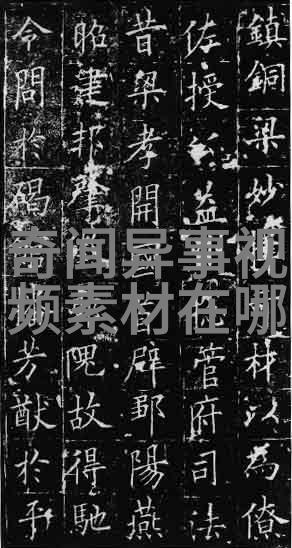 鎮銅梁妙簡材以為僚
佐授公益管府司法
昔梁孝開國首辟鄒陽燕
昭建邦肇隗故得馳
令問於碣芳猷於平
奇闻异事视
频素材在哪